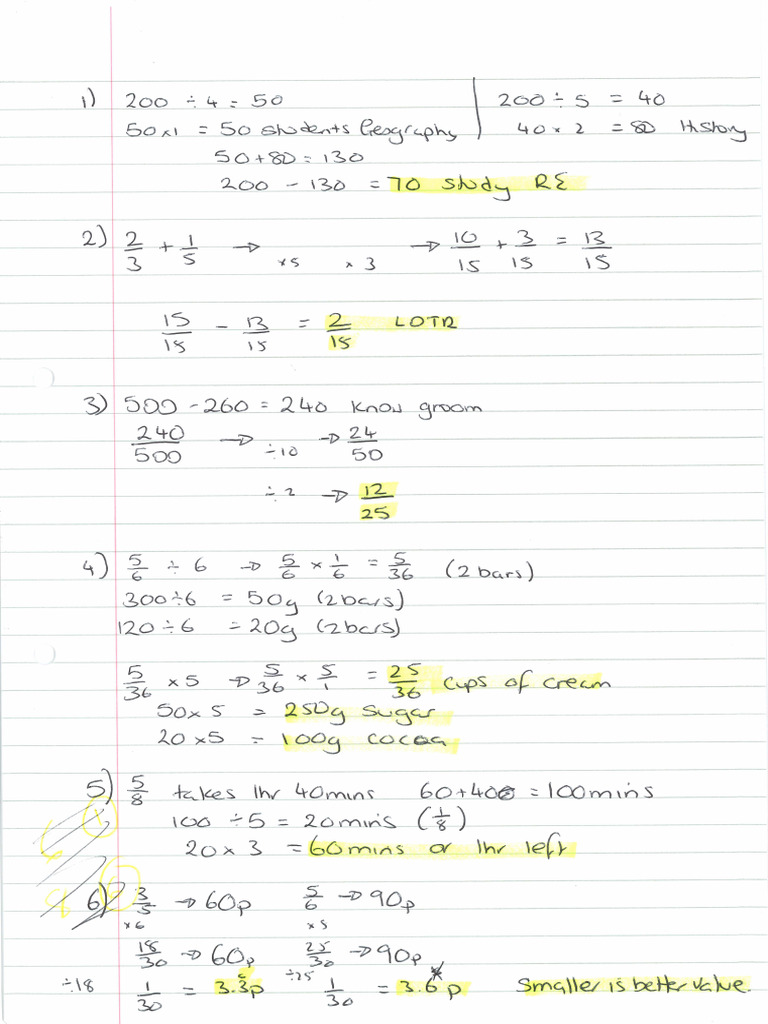 1) 200 ÷ 4 = 50 | 200 ÷ 5 = 40
50 × 1 = 50 students Geography | 40 × 2 = 80 History
50 + 80 = 130
200 - 130 = 70 study RE
2) 2/3 + 1/5 → ×5 ×3 → 10/15 + 3/15 = 13/15
15/15 - 13/15 = 2/15 LOTR
3) 500 - 260 = 240 know groom
240/500 → ÷10 → 24/50
÷2 → 12/25
4) 5/6 ÷ 6 → 5/6 × 1/6 = 5/36 (2 bars)
300÷6 = 50g (2 bars)
120÷6 = 20g (2 bars)
5/36 × 5 → 5/36 × 5/1 = 25/36 cups of cream
50 × 5 = 250g sugar
20 × 5 = 100g cocoa
5) 5/8 takes 1hr 40mins 60+40 = 100mins
100 ÷ 5 = 20mins (1/8)
20 × 3 = 60mins or 1hr left
6) 3/5 → 60p 5/6 → 90p
×6 ×5
18/30 → 60p 25/30 → 90p
÷18 1/30 = 3.3̇p ÷25 1/30 = 3.6p * Smaller is better value.